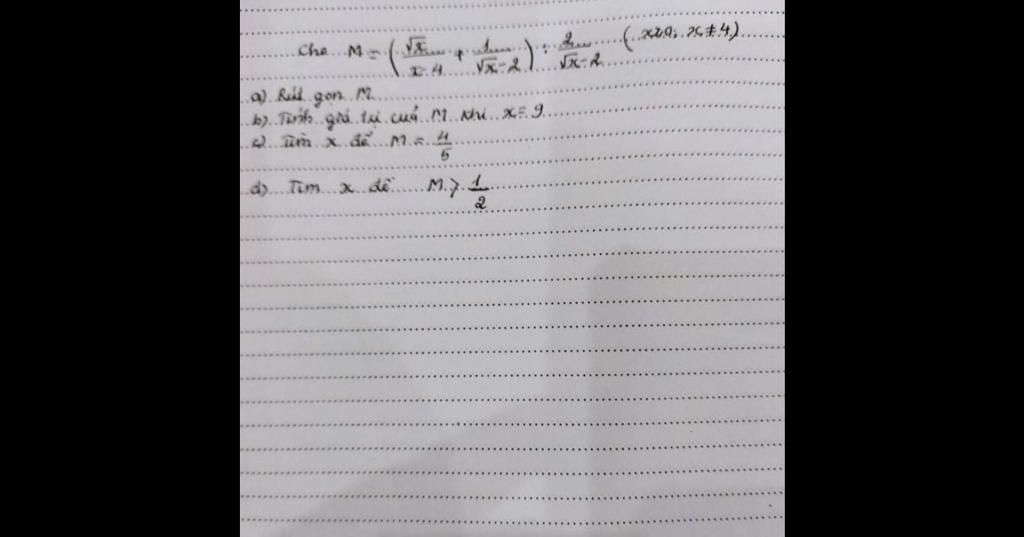 Cho M = (√x/x-4 + 1/√x-2) : 2/√x-2 (x≥0; x≠4)
a) Rút gọn M
b) Tính giá trị của M khi x = 9
c) Tìm x để M = 4/5
d) Tìm x để M > 1/2